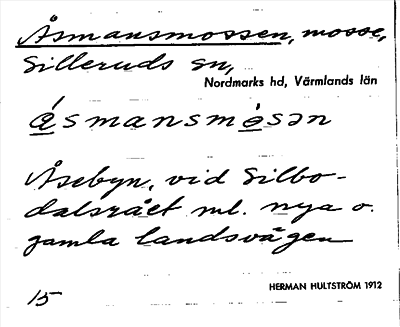 Åsmansmossen, mosse,
Silleruds sn,
Nordmarks hd, Värmlands län
ǻsmansmòsən
Åsebyn, vid Silbo-
dalsrået ml. nya o.
gamla landsvägen
15
HERMAN HULTSTRÖM 1912